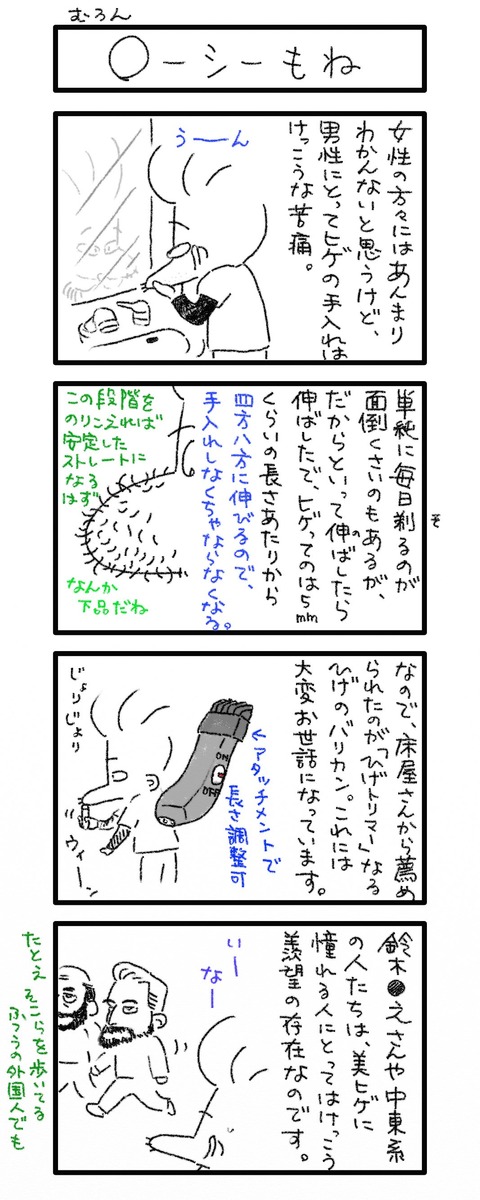 むろん
〇ーシーもね
女性の方々にはあんまり
わかんないと思うけど、
男性にとってヒゲの手入れは
けっこうな苦痛。
うーーん
単純に毎日剃るのが
そ
面倒くさいのもあるが、
だからといって伸ばしたら
の
伸ばしたで、ヒゲってのは5mm
くらいの長さあたりから
四方八方に伸びるので、
手入れしなくちゃならなくなる。
この段階を
のりこえれば
安定した
ストレートに
なる
はず
なんか
下品だね
なので、床屋さんから薦め
られたのが「ひげトリマー」なる
ひげのバリカン。これには
大変お世話になっています。
←アタッチメントで
長さ調整可
ON
OFF
じょりじょり
ウィーン
鈴木●えさんや中東系
の人たちは、美ヒゲに
憧れる人にとってはけっこう
羨望の存在なのです。
いー
なー
たとえ そこらを歩いてる
ふつうの外国人でも